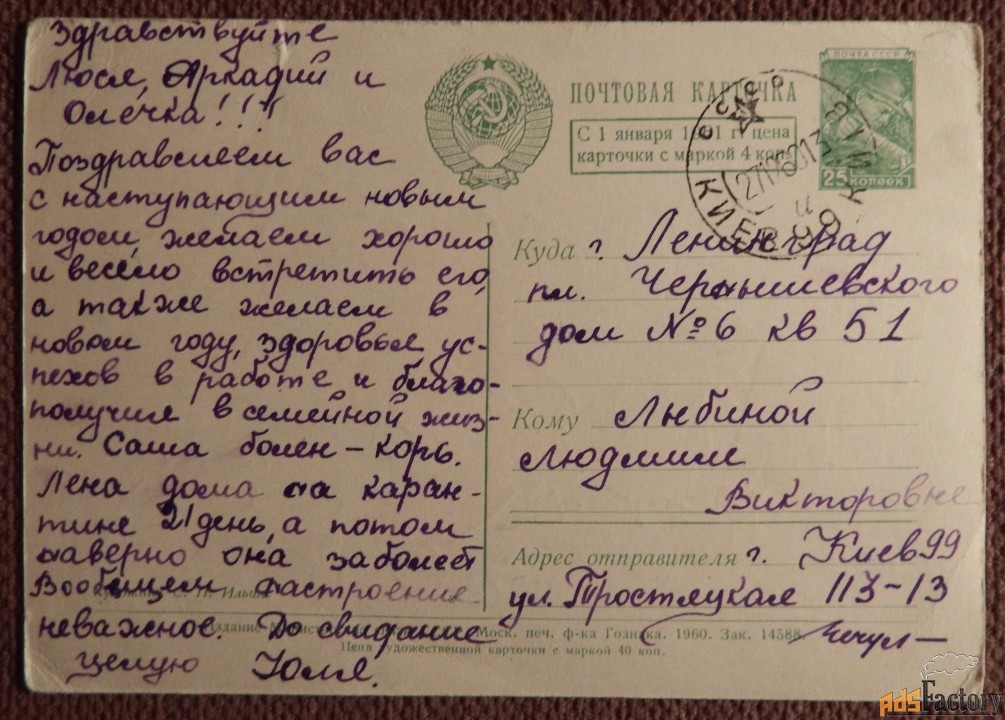 Здравствуйте
Люся, Аркадий и
Олечка!!!
Поздравляем вас
с наступающим новым
годом, желаем хорошо
и весело встретить его,
а также желаем в
новом году, здоровья ус-
пехов в работе и благо-
получия в семейной жиз-
ни. Саша болен - корь.
Лена дома на каран-
тине 21 день, а потом
наверно она заболеет
Вообщем настроение
неважное. До свидание
целую Юля.
ПОЧТОВАЯ КАРТОЧКА
С 1 января 1961 г. цена
карточки с маркой 4 коп.
ПОЧТА СССР
25 КОПЕЕК
СССР
КИЕВ 99
Куда г. Ленинград
пл. Чернышевского
дом № 6 кв 51
Кому Любиной
Людмиле
Викторовне
Адрес отправителя г. Киев 99
ул. Тростяцкая 113-13
Ильин
Издание Моск. печ. ф-ка Гознака. 1960. Зак. 14588.
Цена художественной карточки с маркой 40 коп.
AdsFactory